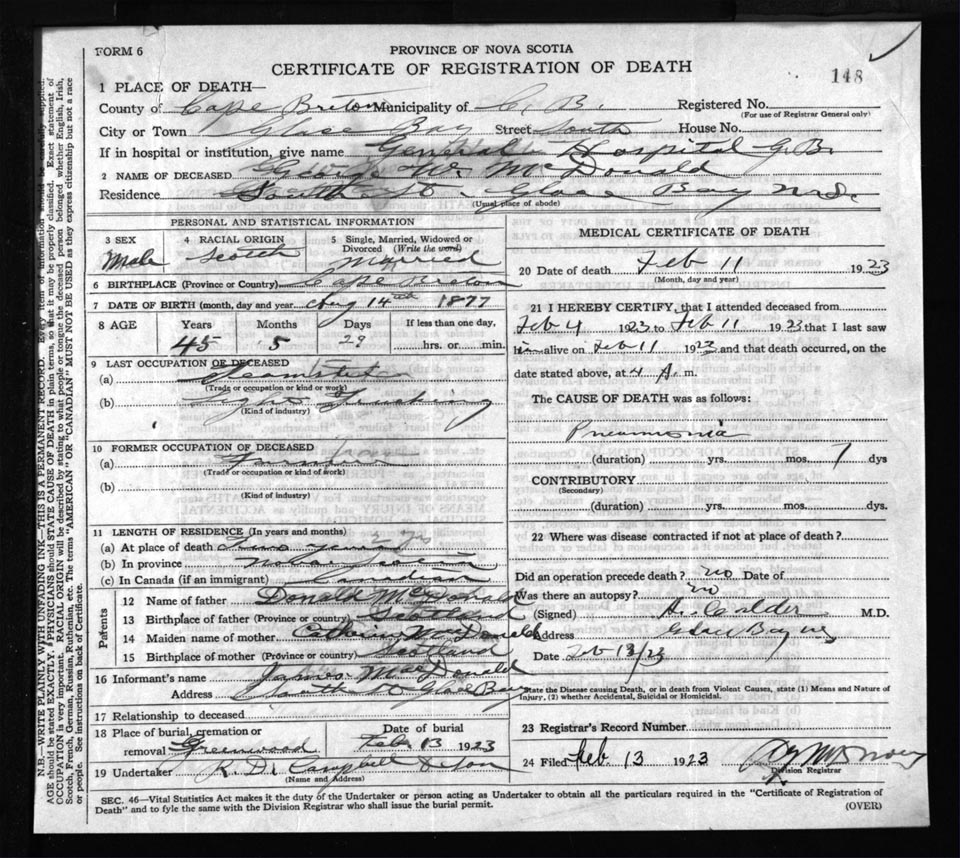 FORM 6
PROVINCE OF NOVA SCOTIA
CERTIFICATE OF REGISTRATION OF DEATH
148
1 PLACE OF DEATH—
County of Cape Breton Municipality of C. B. Registered No.
(For use of Registrar General only)
City or Town Glace Bay Street South House No.
If in hospital or institution, give name General Hospital G.B.
2 NAME OF DECEASED George W. McDonald
Residence South St. Glace Bay N.S.
(Usual place of abode)
PERSONAL AND STATISTICAL INFORMATION
3 SEX Male
4 RACIAL ORIGIN Scotch
5 Single, Married, Widowed or Divorced (Write the word) Married
6 BIRTHPLACE (Province or Country) Cape Breton
7 DATE OF BIRTH (month, day and year) Aug 14th 1877
8 AGE Years Months Days If less than one day,
45 5 29 hrs. or min.
9 LAST OCCUPATION OF DECEASED
(a) Teamster
(Trade or occupation or kind of work)
(b) Trucking
(Kind of industry)
10 FORMER OCCUPATION OF DECEASED
(a)
(Trade or occupation or kind of work)
(b)
(Kind of industry)
11 LENGTH OF RESIDENCE (In years and months)
(a) At place of death
(b) In province
(c) In Canada (if an immigrant) Canadian
Parents
12 Name of father Donald McDonald
13 Birthplace of father (Province or country) Scotland
14 Maiden name of mother Catherine McDonald
15 Birthplace of mother (Province or country) Scotland
16 Informant's name James McDonald
Address South St Glace Bay
17 Relationship to deceased
18 Place of burial, cremation or removal Greenwood
Date of burial Feb 13 1923
19 Undertaker K. D. Campbell
(Name and Address)
MEDICAL CERTIFICATE OF DEATH
20 Date of death Feb 11 1923
(Month, day and year)
21 I HEREBY CERTIFY, that I attended deceased from
Feb 4 1923 to Feb 11 1923 that I last saw
him alive on Feb 11 1923 and that death occurred, on the
date stated above, at 4 A. m.
The CAUSE OF DEATH was as follows:
Pneumonia
(duration) yrs. mos. 7 dys
CONTRIBUTORY
(Secondary)
(duration) yrs. mos. dys.
22 Where was disease contracted if not at place of death?
Did an operation precede death? no Date of
Was there an autopsy? no
(Signed) Calder M.D.
Address Glace Bay
Date Feb 13/23
State the Disease causing Death, or in death from Violent Causes, state (1) Means and Nature of
Injury, (2) whether Accidental, Suicidal or Homicidal.
23 Registrar's Record Number
24 Filed Feb 13 1923
Division Registrar
SEC. 46—Vital Statistics Act makes it the duty of the Undertaker or person acting as Undertaker to obtain all the particulars required in the "Certificate of Registration of
Death" and to fyle the same with the Division Registrar who shall issue the burial permit.
(OVER)
N.B.—WRITE PLAINLY WITH UNFADING INK—THIS IS A PERMANENT RECORD. Every item of information should be carefully supplied.
AGE should be stated EXACTLY. PHYSICIANS should STATE CAUSE OF DEATH in plain terms, so that it may be properly classified. Exact statement of
OCCUPATION is very important. RACIAL ORIGIN will be described by stating to what people or tongue the deceased person belonged whether English, Irish,
Scotch, French, German, Russian, Ruthenian, etc. The terms "AMERICAN" OR "CANADIAN" MUST NOT BE USED as they express citizenship but not a race
or people. See instructions on back of Certificate.